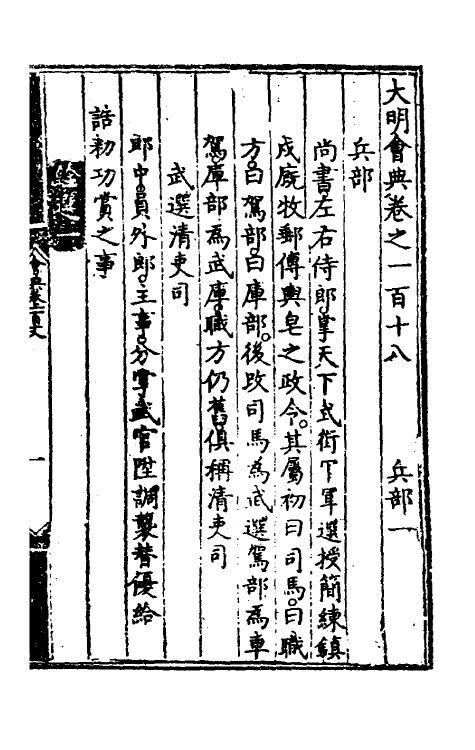 大明會典卷之一百十八 兵部一
兵部
尚書左右侍郎掌天下武衛官軍選授簡練鎮
戍廐牧郵傳輿皂之政令其屬初曰司馬曰職
方曰駕部曰庫部後改司馬為武選駕部為車
駕庫部為武庫職方仍舊俱稱清吏司
武選清吏司
郎中員外郎主事分掌武官陞調襲替優給
誥勑功賞之事